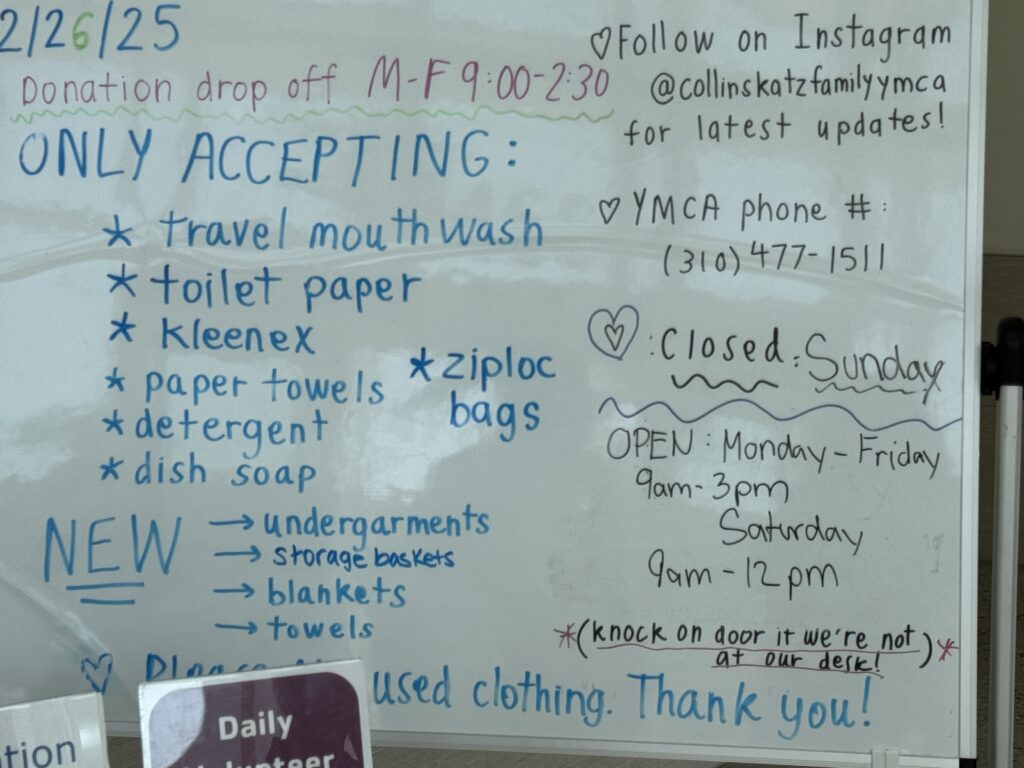 2/26/25
Donation drop off M-F 9:00-2:30
ONLY ACCEPTING:
* travel mouthwash
* toilet paper
* Kleenex
* paper towels
* detergent
* dish soap
* ziploc
bags
NEW
→ undergarments
→ storage baskets
→ blankets
→ towels
♡ Please
used clothing. Thank you!
♡ Follow on Instagram
@collinskatzfamilyymca
for latest updates!
♡ YMCA phone #:
(310) 477-1511
♡: Closed: Sunday
OPEN: Monday - Friday
9am - 3pm
Saturday
9am - 12 pm
*(knock on door if we're not
at our desk!)*
tion
Daily
Volunteer